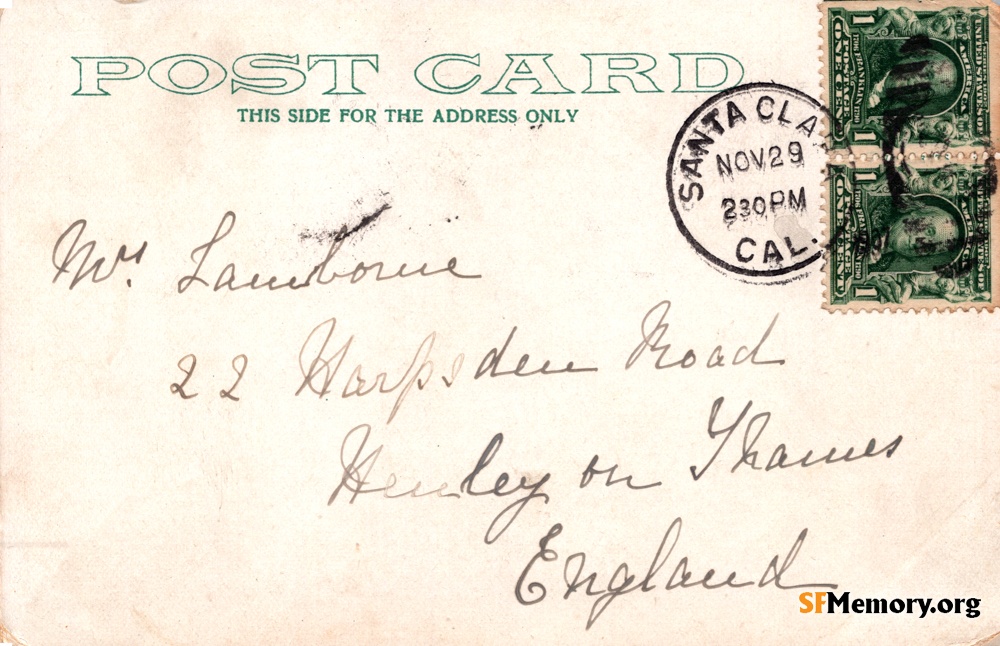 POST CARD
THIS SIDE FOR THE ADDRESS ONLY
SANTA CLA
NOV 29
230 PM
CAL.
1
1
1
1
Mrs. Lambourne
22 Harpsden Road
Henley on Thames
England
SFMemory.org